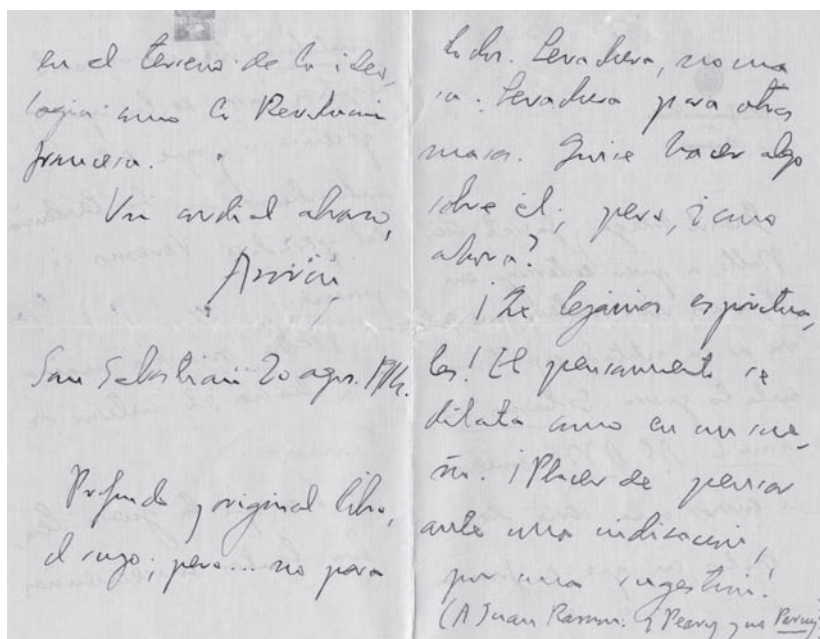 en el terreno de la ideo-
logía como la Revolución
francesa.
Un cordial abrazo,
Azorín
San Sebastián 20 agos. 1914.
Profundo y original libro,
el suyo; pero... no para
todos. Levadura, no ma
sa. Levadura para otras
masas. Quise hacer algo
sobre él; pero, ¿cómo
ahora?
¡Qué lejanías espiritua-
les! El pensamiento se
dilata como en un sue-
ño. ¡Placer de pensar
ante una indicación,
por una sugestión!
(A Juan Ramón. y no